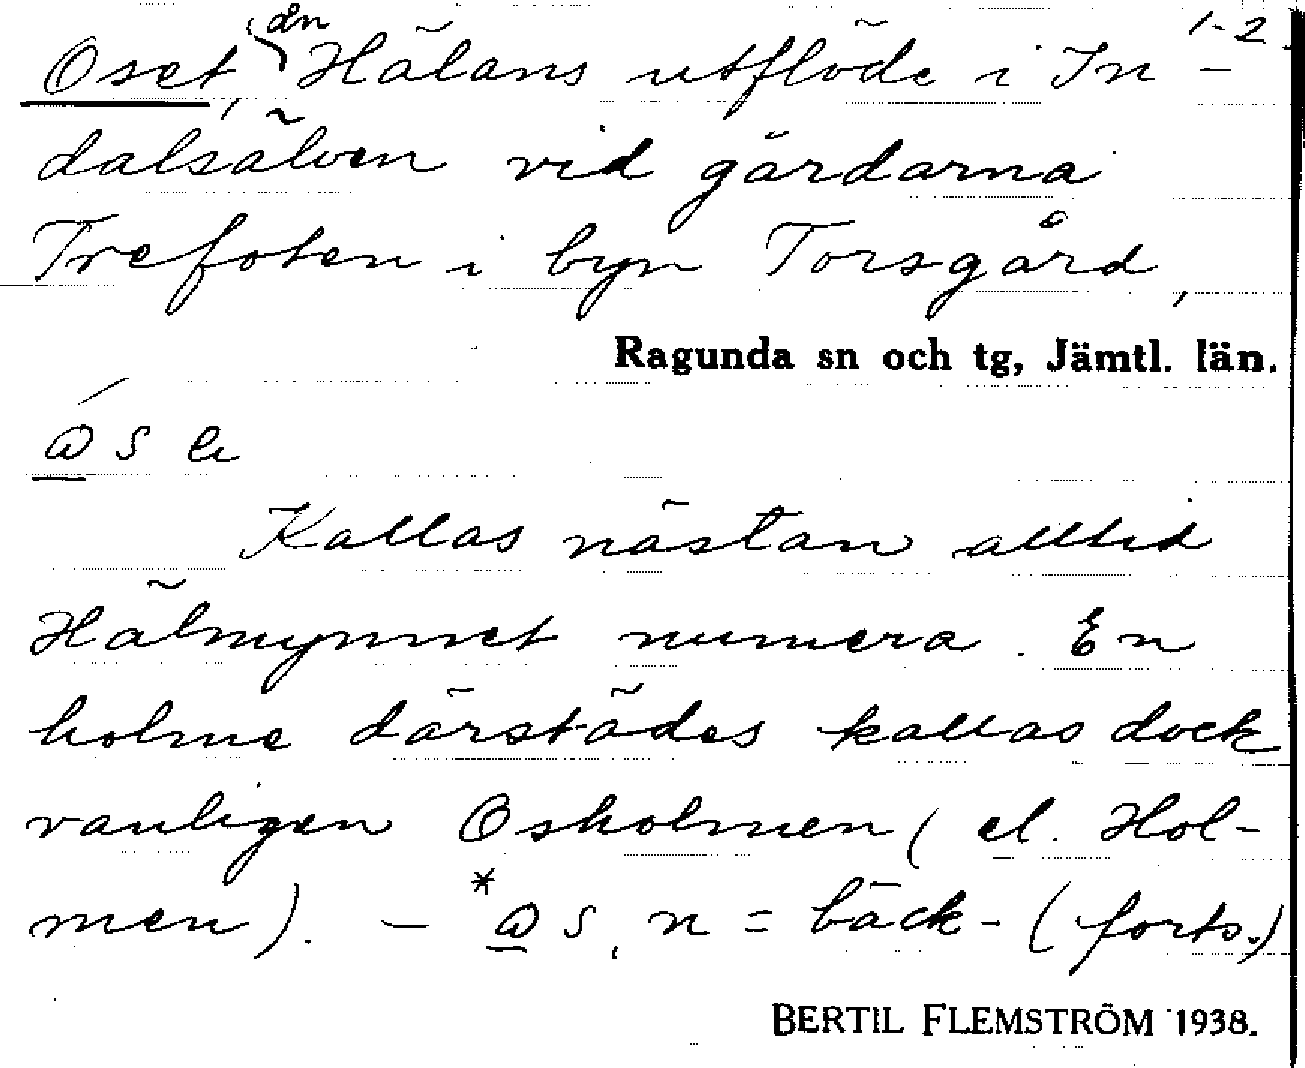 1-2.
Oset, ån Hälans utflöde i In-
dalsälven vid gårdarna
Trefoten i byn Torsgård,
Ragunda sn och tg, Jämtl. län.
Kallas nästan alltid
Hälmynnet numera. En
holme därstädes kallas dock
vanligen Osholmen (el. Hol-
men). — = bäck- (forts.)
BERTIL FLEMSTRÖM 1938.